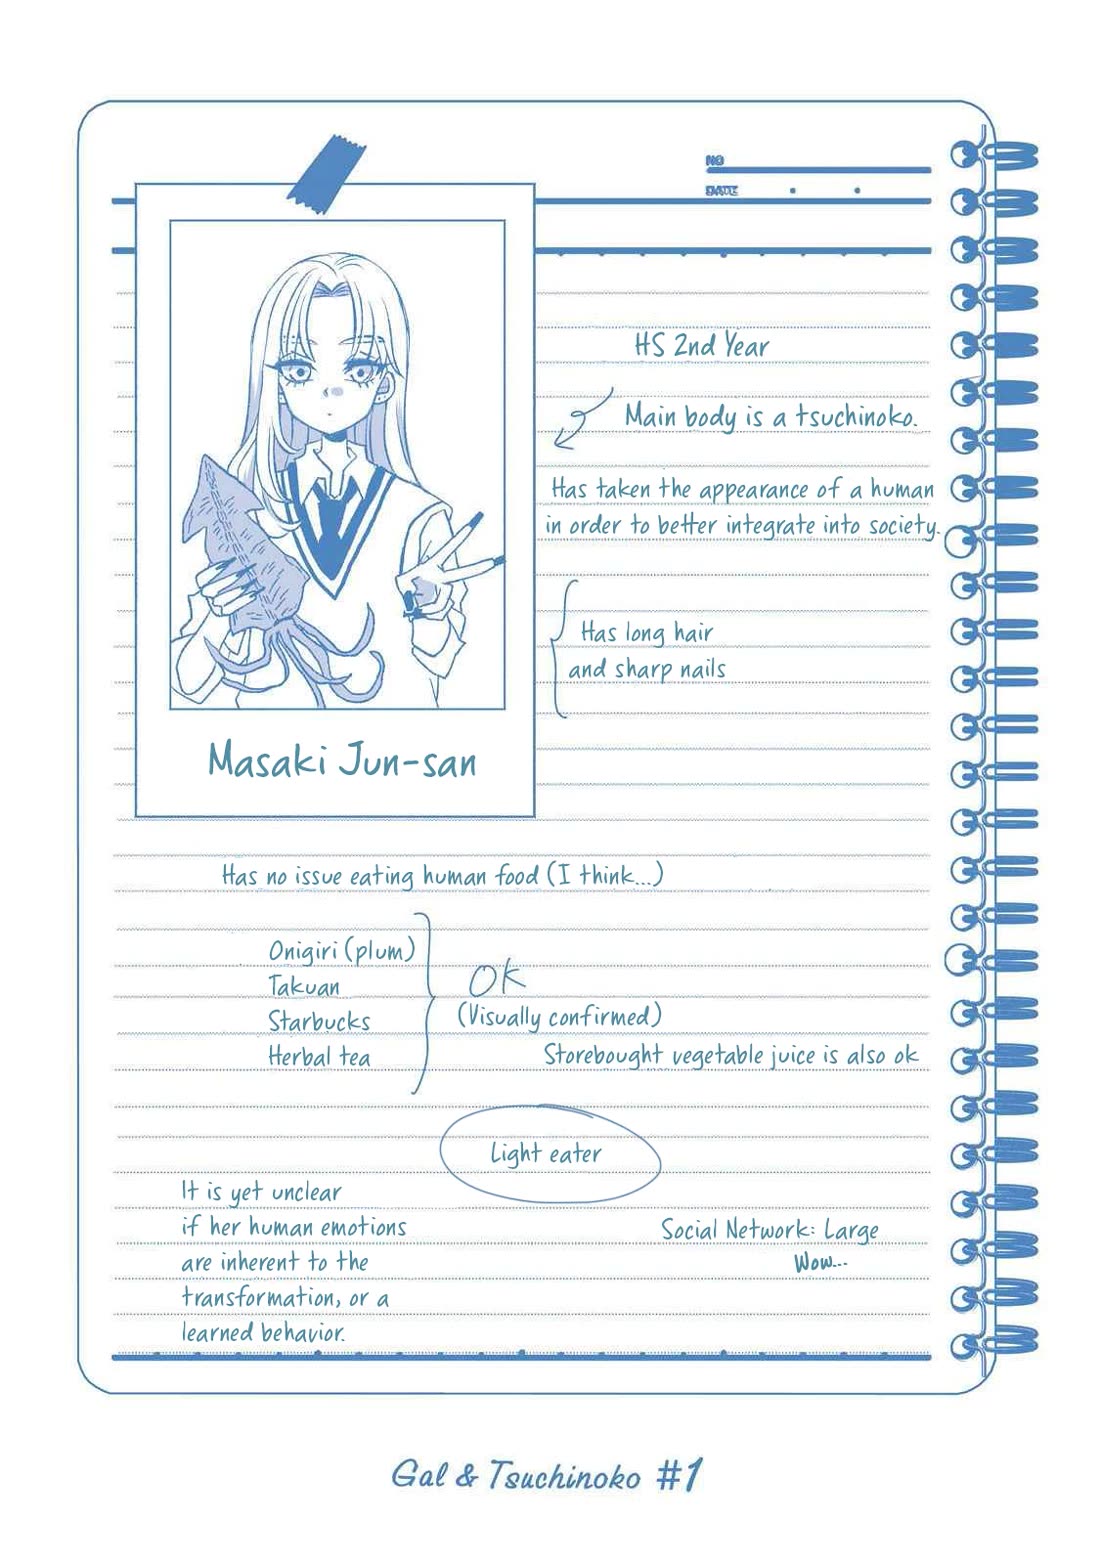 NO
DATE
HS 2nd Year
Main body is a tsuchinoko.
Has taken the appearance of a human
in order to better integrate into society.
Has long hair
and sharp nails
Masaki Jun-san
Has no issue eating human food (I think...)
Onigiri (plum)
Takuan
Starbucks
Herbal tea
OK
(Visually confirmed)
Storebought vegetable juice is also ok
Light eater
It is yet unclear
if her human emotions
are inherent to the
transformation, or a
learned behavior.
Social Network: Large
Wow...
Gal & Tsuchinoko #1